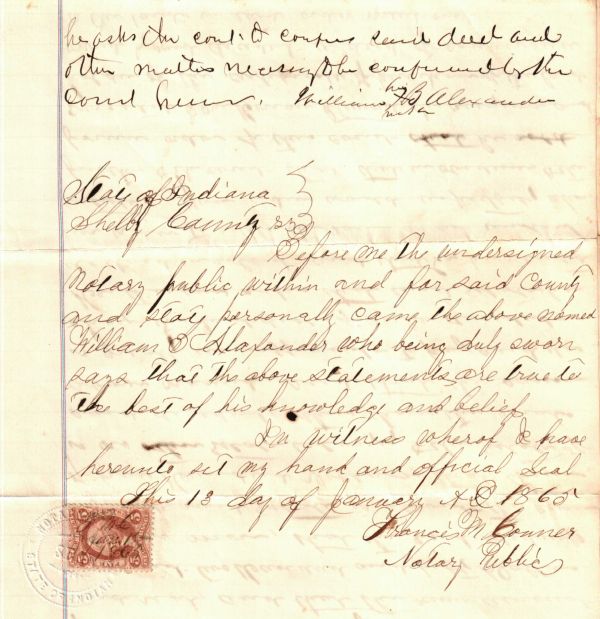 he asks the court to confirm said deed and
other matters necessary to be confirmed by the
Court herein. William his B mark Alexander
State of Indiana
Shelby County SS
Before me the undersigned
Notary public within and for said County
and State personally came the above named
William Alaxander who being duly sworn
says that the above statements are true to
the best of his knowledge and belief
In witness wherof I have
hereunto set my hand and official Seal
This 13 day of January A D 1865
Francis M Conner
Notary Public